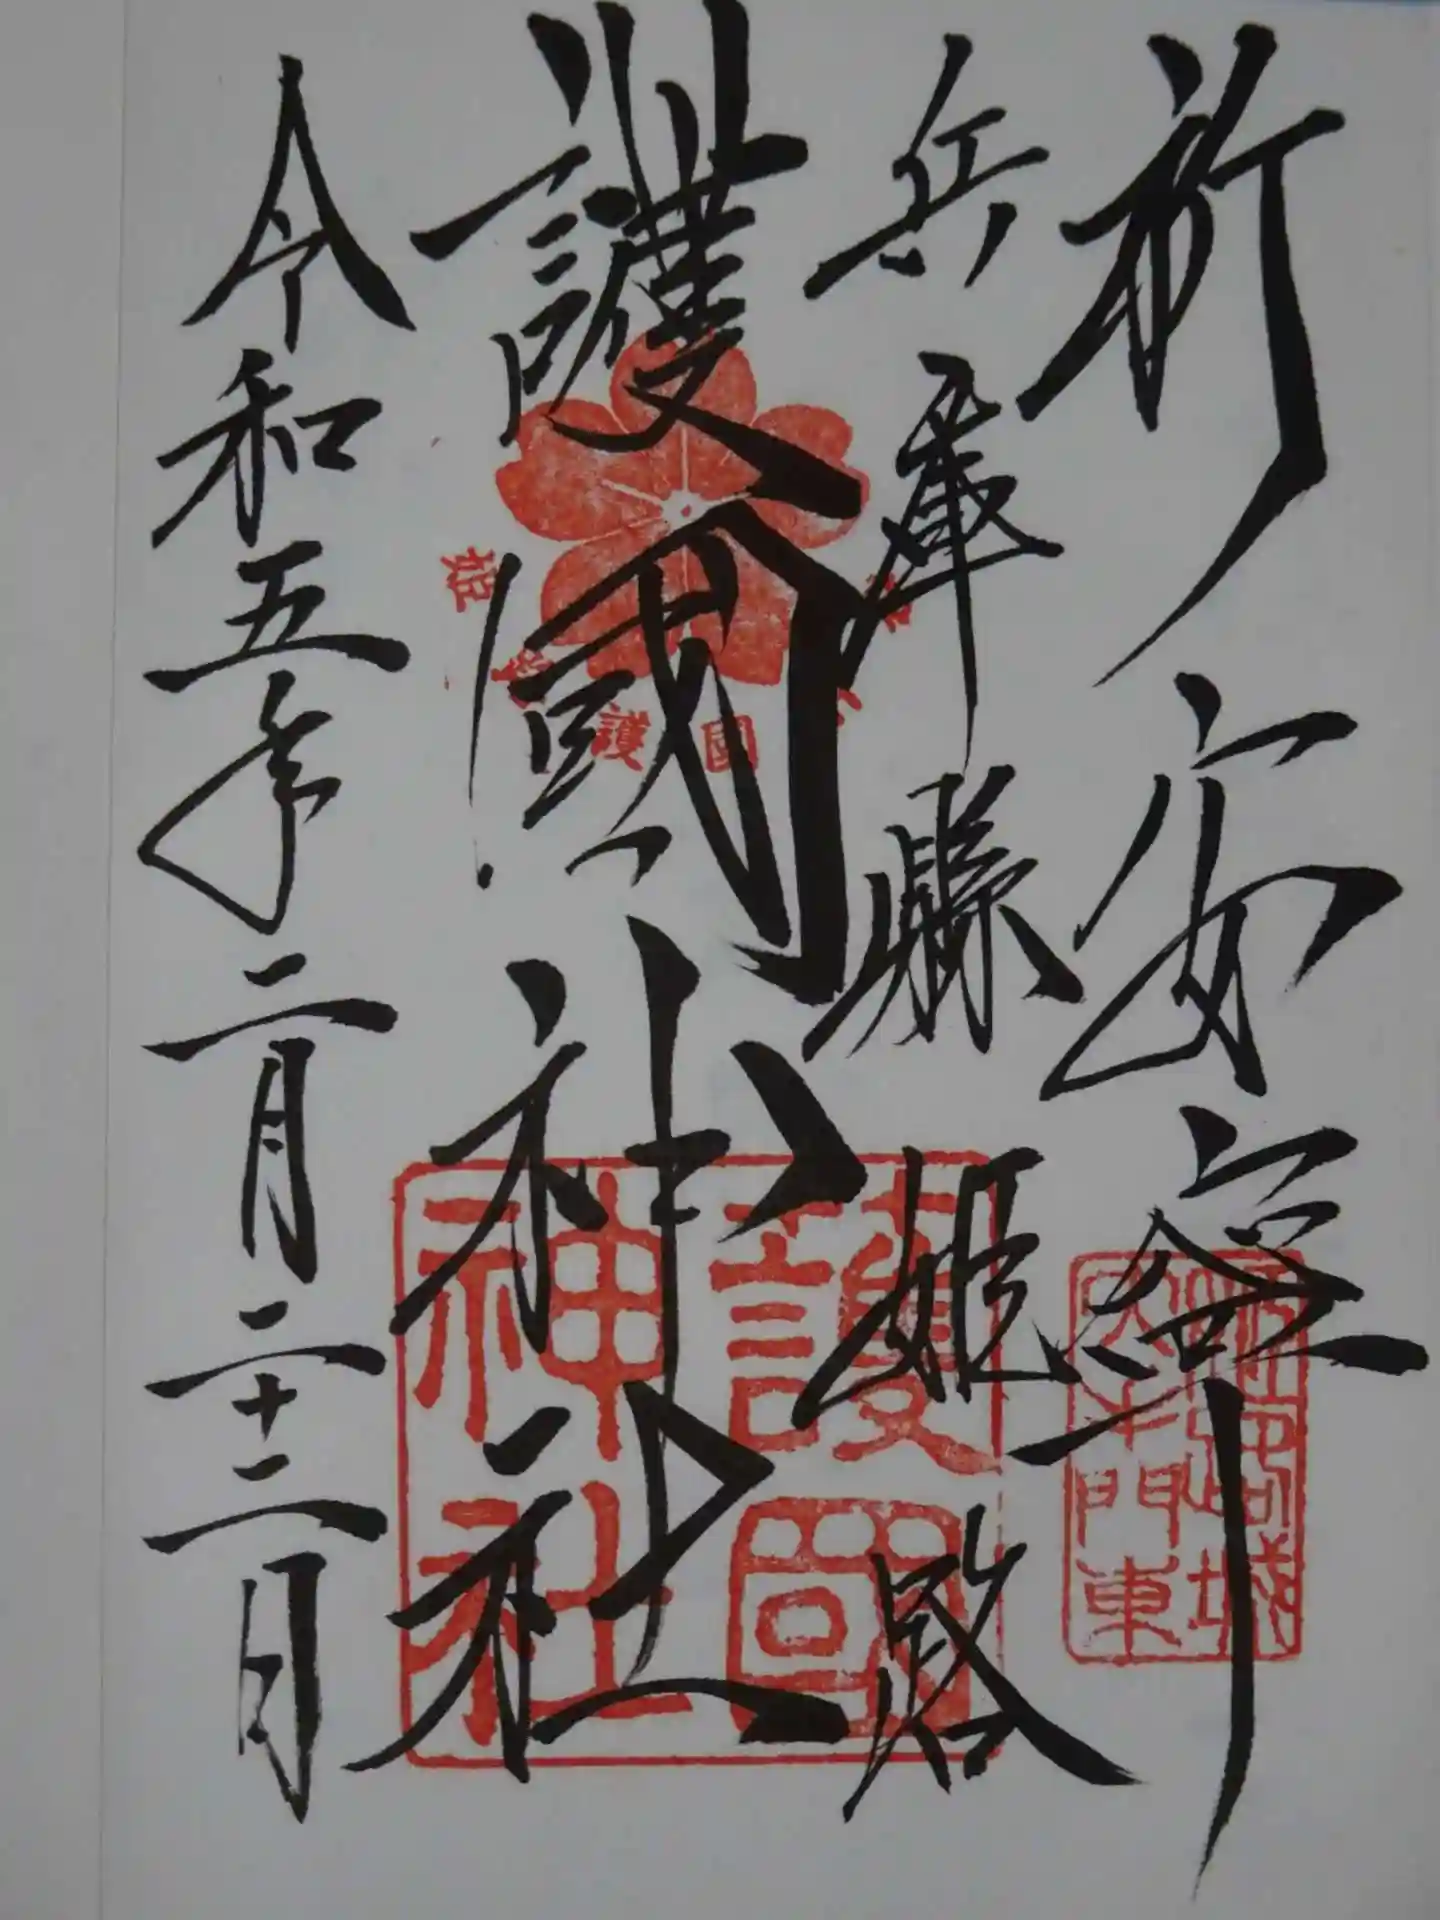 祈安寧
兵庫縣姫路
護國神社
令和五年二月二十二日
姫
護國
護國神社
姫路城
大手門東